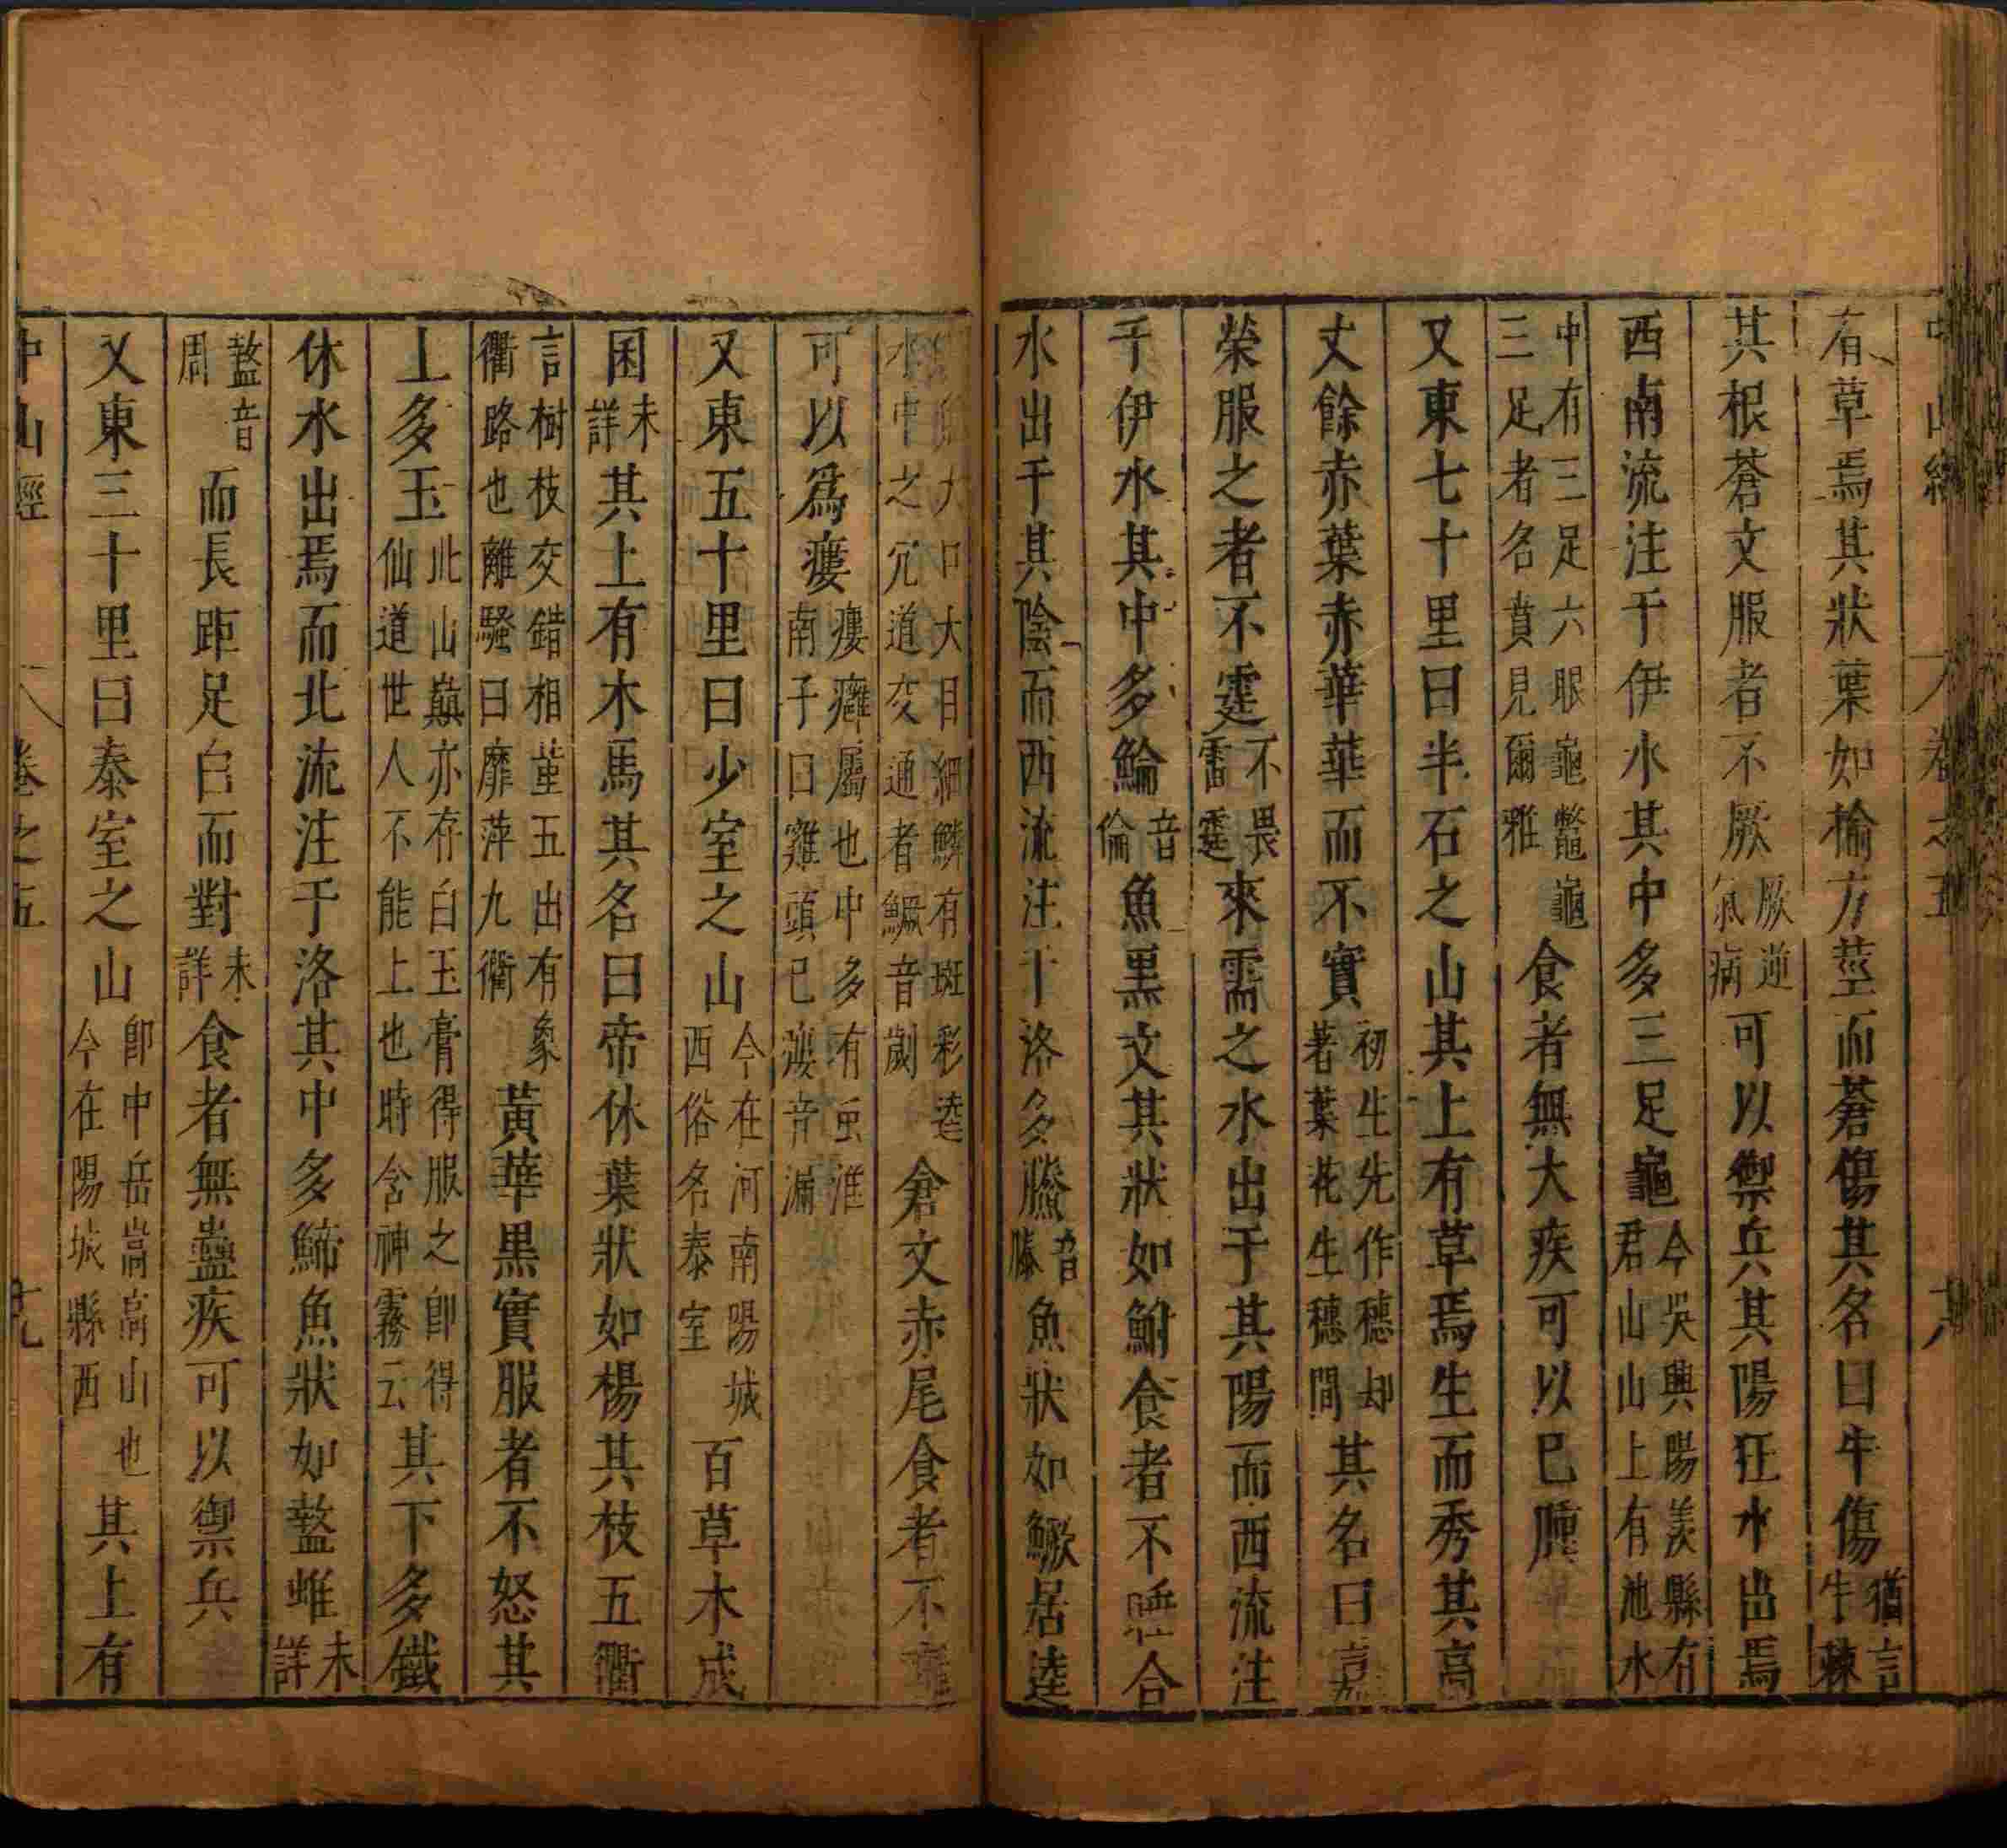 中山經 卷之五 十八
有草焉其狀葉如榆方莖而蒼傷其名曰牛傷猶言牛棘
其根蒼文服者不厥厥逆氣病可以禦兵其陽狂水出焉
西南流注于伊水其中多三足龜今吳興陽羨縣有君山山上有池水
中有三足六眼龜鼈龜三足者名賁見爾雅食者無大疾可以已腫
又東七十里曰半石之山其上有草焉生而秀其高
丈餘赤葉赤華華而不實初生先作穗却著葉花生穗間其名曰嘉
榮服之者不霆不畏雷霆來需之水出于其陽而西流注
于伊水其中多鯩音倫魚黑文其狀如鮒食者不睡合
水出于其陰而西流注于洛多䲢音滕魚狀如鱖居逵
大口大目細鱗有斑彩逵水中之穴道交通者鱖音劌 倉文赤尾食者不
可以為瘻瘻癰屬也中多有虫淮南子曰雞頭已瘻音漏
又東五十里曰少室之山今在河南陽城西俗名泰室百草木成
囷未詳其上有木焉其名曰帝休葉狀如楊其枝五衢
言樹枝交錯相重五出有象衢路也離騷曰靡萍九衢黃華黑實服者不怒其
上多玉此山巔亦存白玉膏得服之卽得仙道世人不能上也時含神霧云其下多鐵
休水出焉而北流注于洛其中多䱱魚狀如盩蜼未詳
盩音周而長距足白而對未詳食者無蠱疾可以禦兵
又東三十里曰泰室之山卽中岳嵩高山也今在陽城縣西其上有
中山經 卷之五 十九